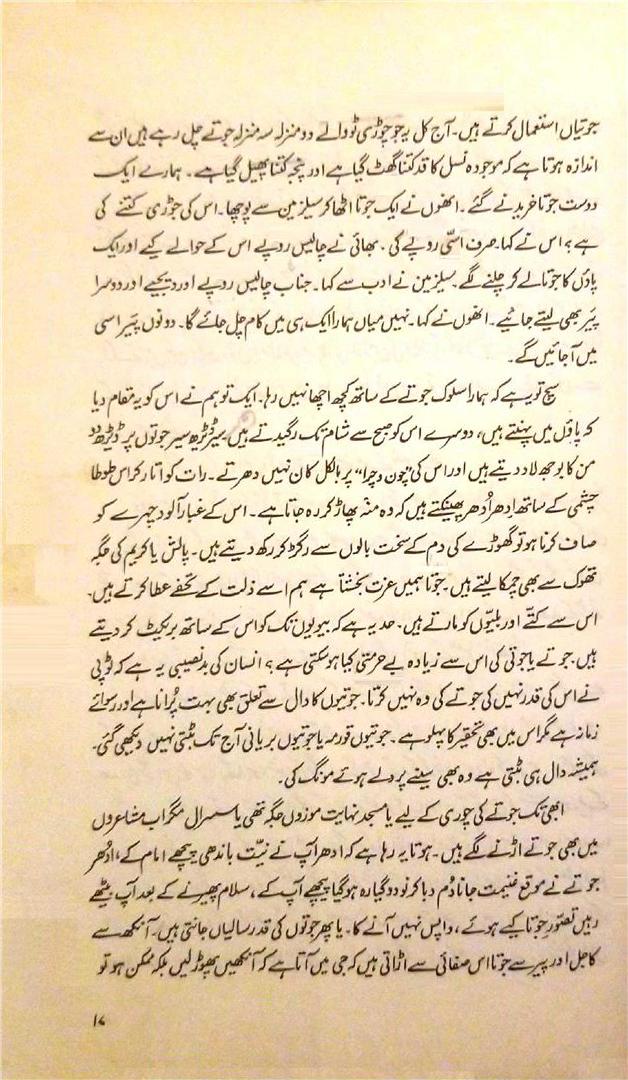 جوتیاں استعمال کرتے ہیں۔ آج کل یہ جو چوڑی ٹو والے دو منزلہ سہ منزلہ جوتے چل رہے ہیں ان سے
اندازہ ہوتا ہے کہ موجودہ نسل کا قد کتنا گھٹ گیا ہے اور پنجہ کتنا پھیل گیا ہے۔ ہمارے ایک
دوست جوتا خریدنے گئے۔ انھوں نے ایک جوتا اٹھا کر سیلز مین سے پوچھا۔ اس کی جوڑی کتنے کی
ہے؟ اس نے کہا۔ صرف اسّی روپے کی۔ بھائی نے چالیس روپے اس کے حوالے کیے اور ایک
پاؤں کا جوتا لے کر چلنے لگے۔ سیلز مین نے ادب سے کہا۔ جناب چالیس روپے اور دیجیے اور دوسرا
پَیر بھی لیتے جائیے۔ انھوں نے کہا۔ نہیں میاں ہمارا ایک ہی میں کام چل جائے گا۔ دونوں پَیر اسی
میں آ جائیں گے۔
سچ تو یہ ہے کہ ہمارا سلوک جوتے کے ساتھ کچھ اچھا نہیں رہا۔ ایک تو ہم نے اس کو یہ مقام دیا
کہ پاؤں میں پہنتے ہیں، دوسرے اس کو صبح سے شام تک رگیدتے ہیں۔ سیر ڈیڑھ سیر جوتوں پر ڈیڑھ دو
من کا بوجھ لاد دیتے ہیں اور اس کی ”چون و چرا“ پر بالکل کان نہیں دھرتے۔ رات کو اتار کر اس طوطا
چشمی کے ساتھ اِدھر اُدھر پھینکتے ہیں کہ وہ منہ پھاڑ کر رہ جاتا ہے۔ اس کے غبار آلود چہرے کو
صاف کرنا ہو تو گھوڑے کی دم کے سخت بالوں سے رگڑ کر رکھ دیتے ہیں۔ پالش یا کریم کی جگہ
تھوک سے بھی چمکا لیتے ہیں۔ جوتا ہمیں عزت بخشتا ہے ہم اسے ذلت کے تحفے عطا کرتے ہیں۔
اس سے کتّے اور بلیّوں کو مارتے ہیں۔ حد یہ ہے کہ بیویوں تک کو اس کے ساتھ بریکٹ کر دیتے
ہیں۔ جوتے یا جوتی کی اس سے زیادہ بے حرمتی کیا ہو سکتی ہے؟ انسان کی بدنصیبی یہ ہے کہ ٹوپی
نے اس کی قدر نہیں کی جوتے کی وہ نہیں کرتا۔ جوتیوں کا دال سے تعلق بھی بہت پُرانا ہے اور رسوائے
زمانہ ہے مگر اس میں بھی تحقیر کا پہلو ہے۔ جوتیوں قورمہ یا جوتیوں بریانی آج تک بٹتی نہیں دیکھی گئی۔
ہمیشہ دال ہی بٹتی ہے وہ بھی سینے پر دلے ہوئے مونگ کی۔
ابھی تک جوتے کی چوری کے لیے یا مسجد نہایت موزوں جگہ تھی یا سسرال مگر اب مشاعروں
میں بھی جوتے اڑنے لگے ہیں۔ ہوتا یہ رہا ہے کہ ادھر آپ نے نیّت باندھی پیچھے امام کے، اُدھر
جوتے نے موقع غنیمت جانا دُم دبا کر نو دو گیارہ ہو گیا پیچھے آپ کے، سلام پھیرنے کے بعد آپ بیٹھے
رہیں تصوّرِ جوتا کیے ہوئے، واپس نہیں آنے کا۔ یا پھر جوتوں کی قدر سالیاں جانتی ہیں۔ آنکھ سے
کاجل اور پیر سے جوتا اس صفائی سے اڑاتی ہیں کہ جی میں آتا ہے کہ آنکھیں پھوڑ لیں بلکہ ممکن ہو تو
۱۷